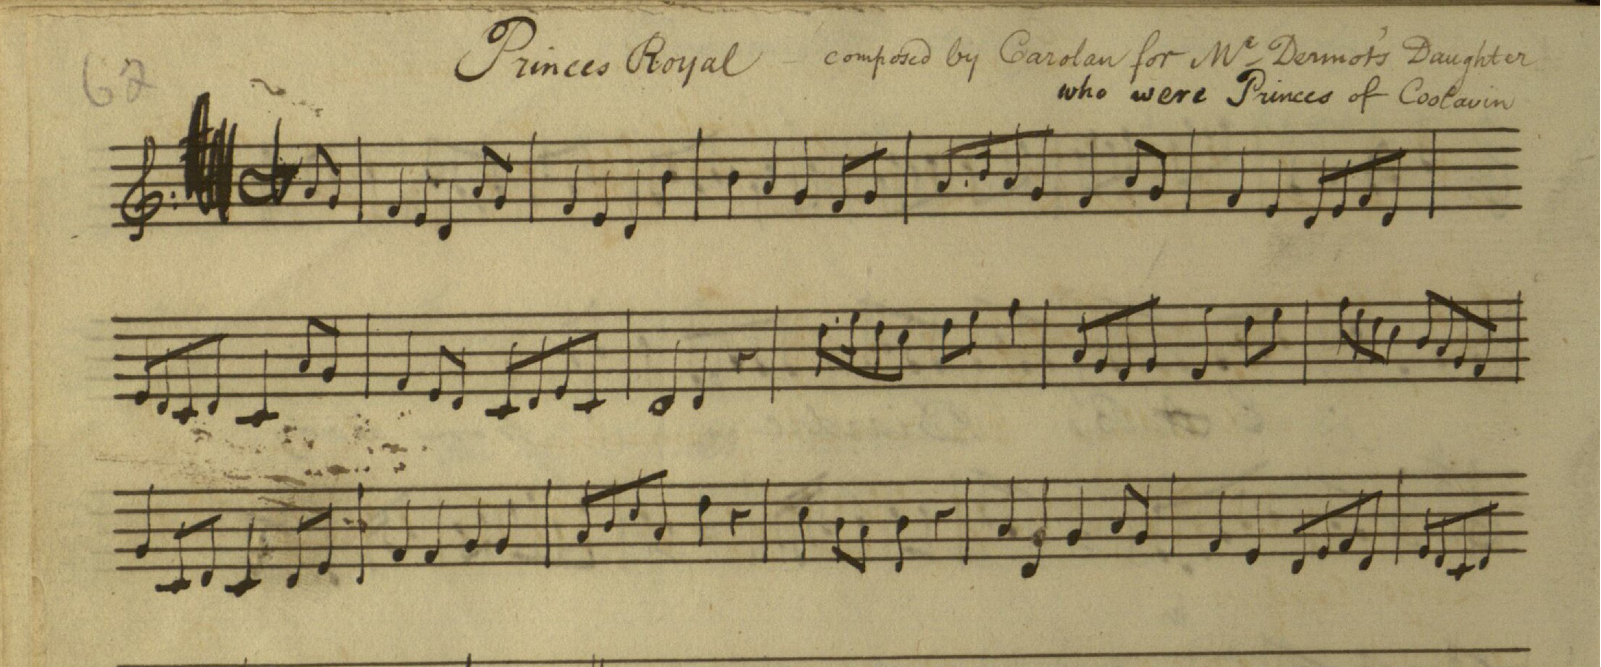 62
Princes Royal - composed by Carolan for Mc Dermot's Daughter
who were Princes of Coolavin